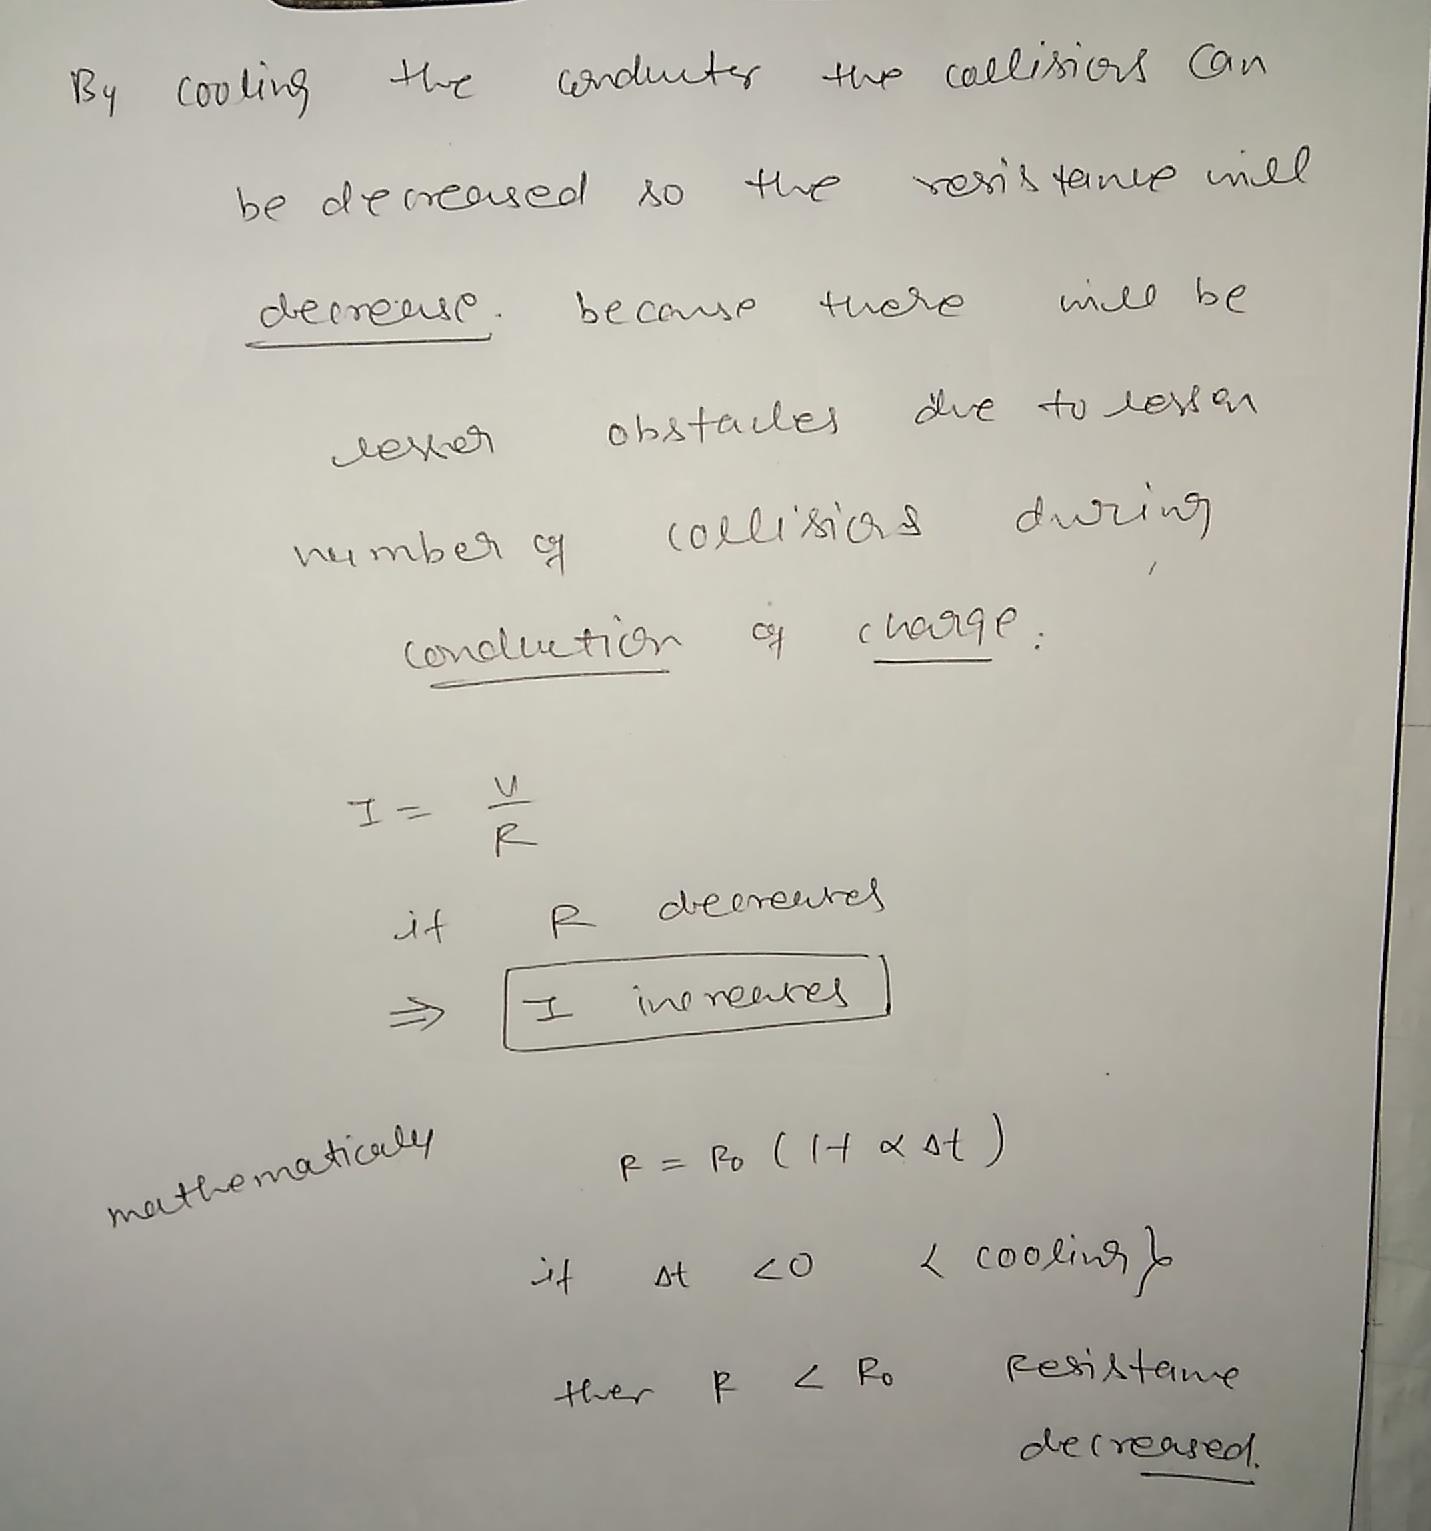 By cooling the conductor the collisions can
be decreased so the resistance will
decrease. because there will be
lesser obstacles due to lesser
number of collisions during
conduction of charge.
I = V/R
if R decreases
⇒ I increases
mathematicaly R = R₀ (1+ α Δt)
if Δt <0 { cooling }
then R < R₀ Resistance
decreased.